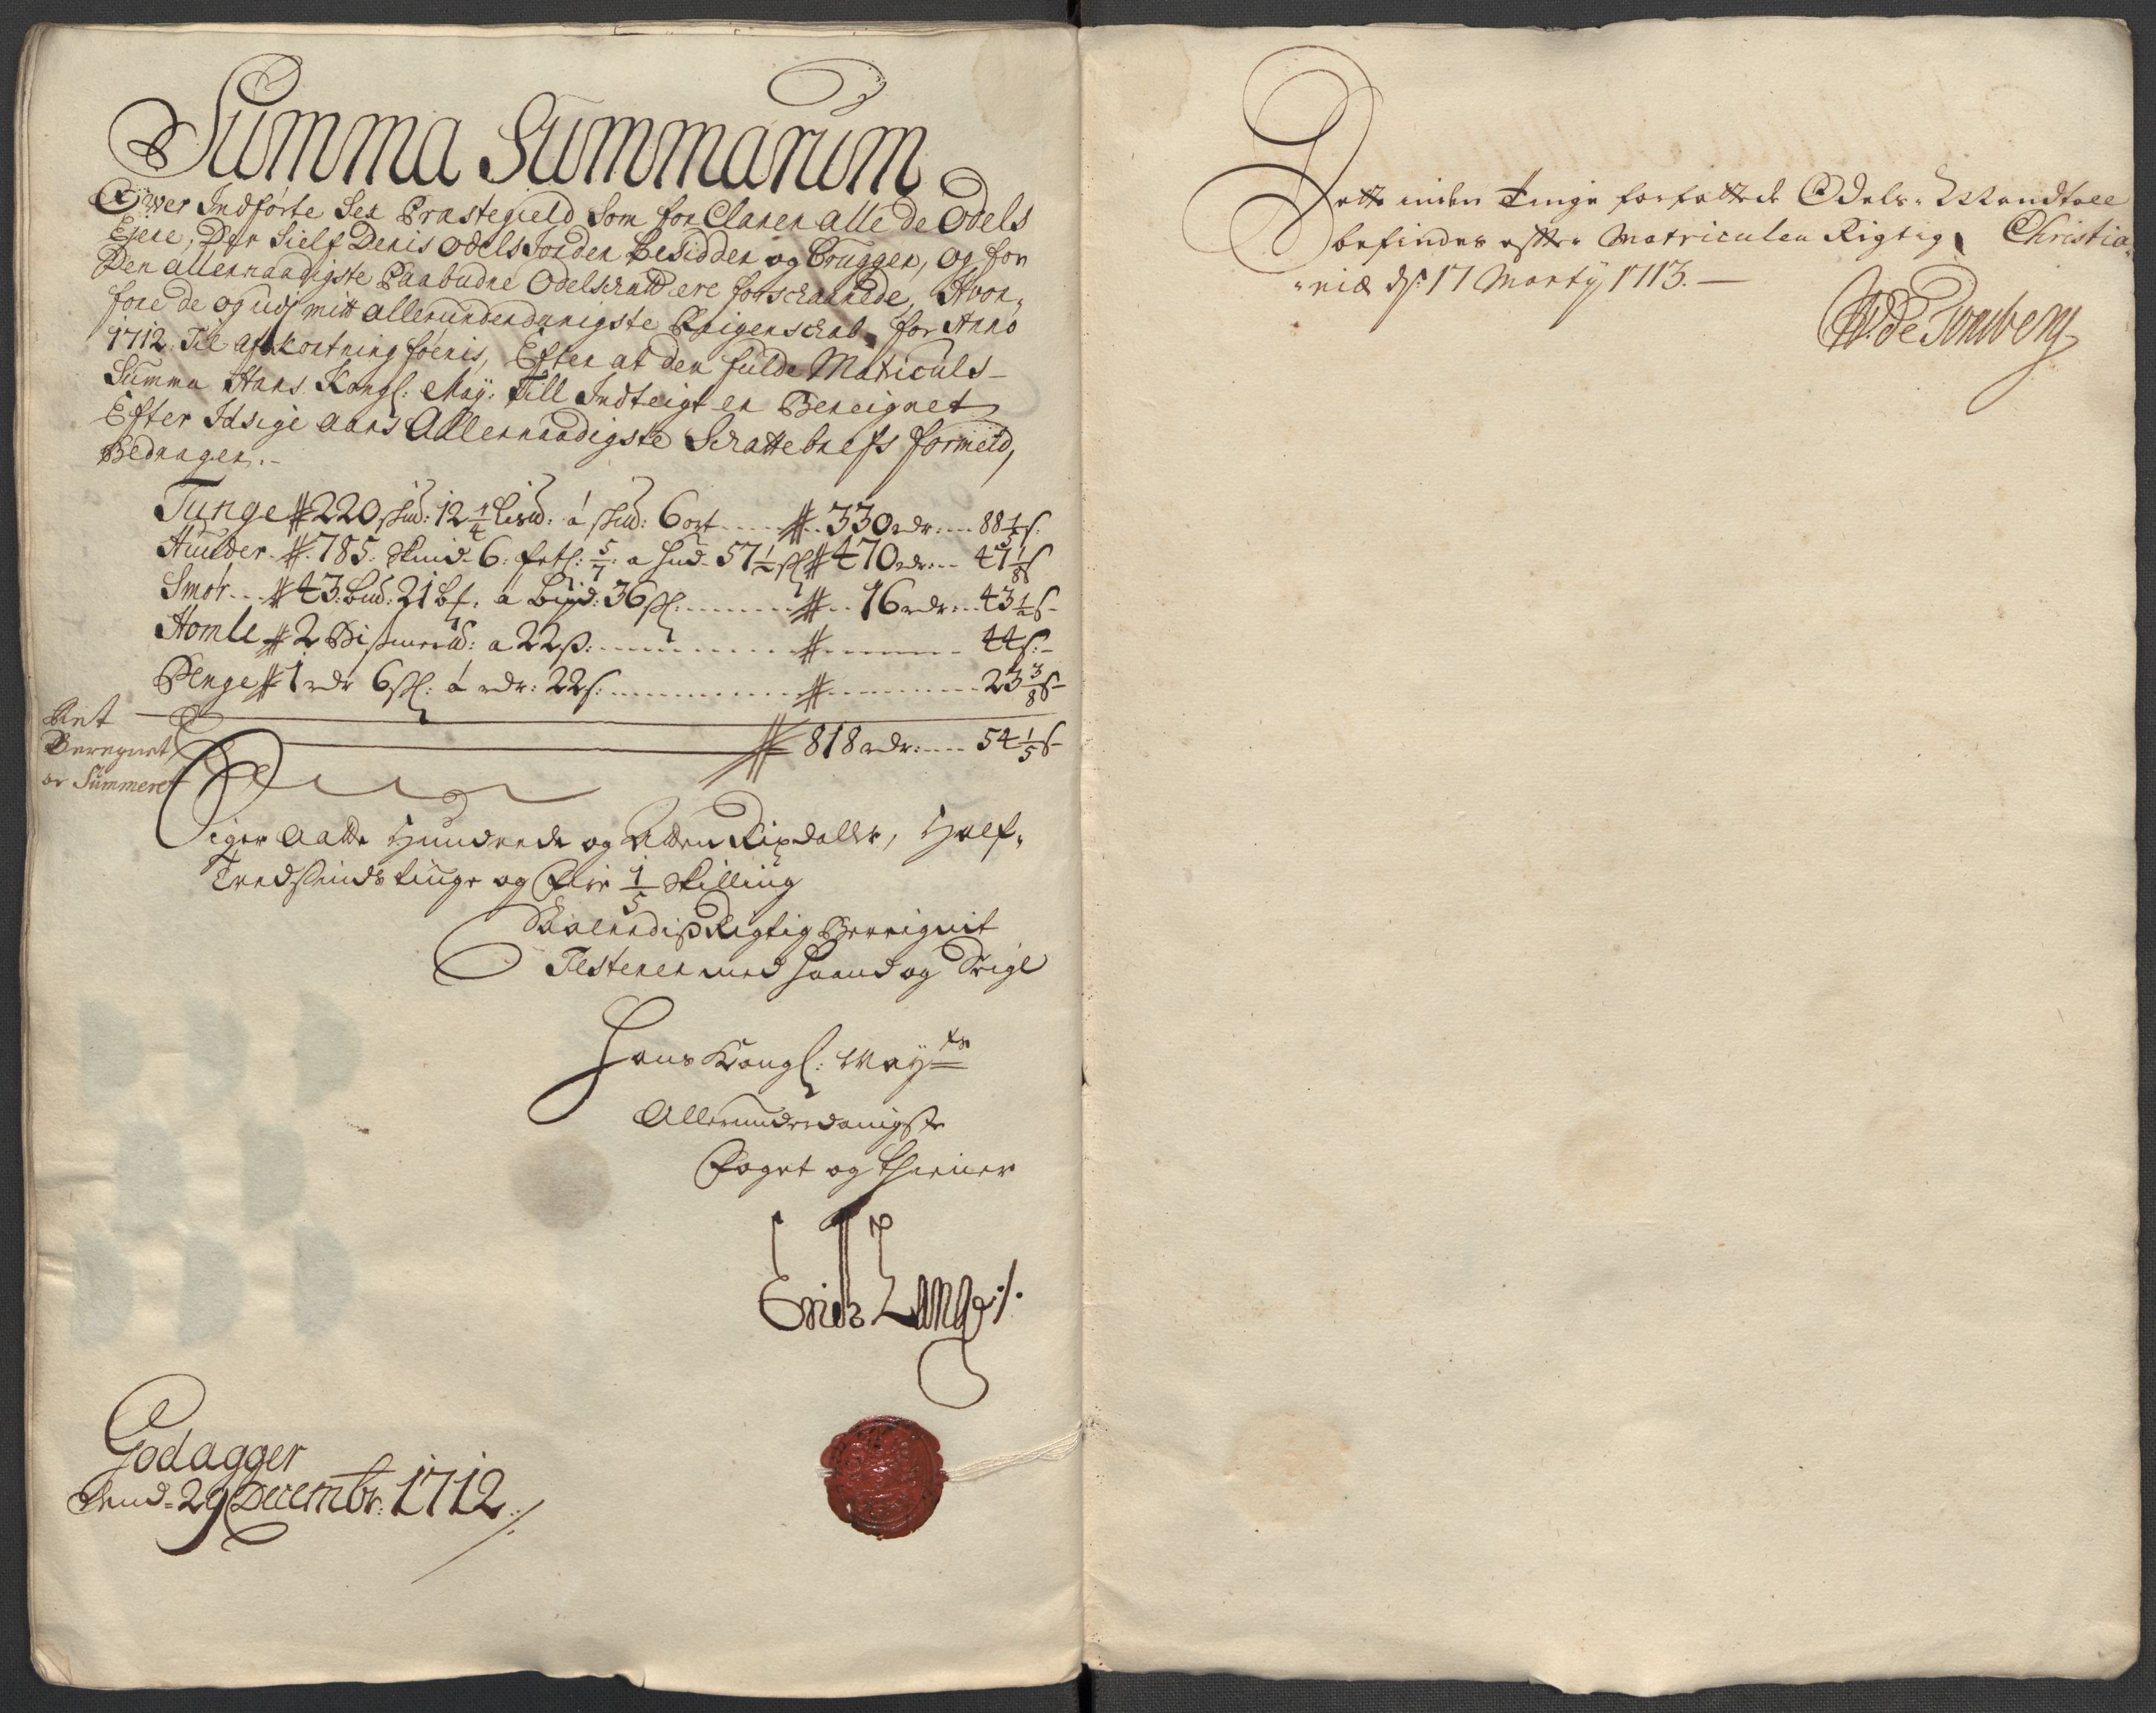 Summa Summarum
Over Indførte Sex Præstegield Som forClarer alle de Odels
Ejere, Der Sielf Deris Odels Jorder besidder og Brugger, og for
Den allernaadigste Paabudne Odelschatt ere forschaanede, Hvor-
fore de og udj mitt allerunderdanigste Reigenschab for Anno
1712. Til afkortning føeris, Efter at den fulde Matriculs-
Summa Hans Kongl: May: till Indteigt er Bereignet
Efter Idsige aars Allernaadigste Schattebrefs formeld,
Bedrager.-
Tunge # 220 skud: 12 1/4 lisd: á skud: 6 ort ...... # 330 rdr: .... 88 1/5 s:
Huuder # 785: Skind 6: á hud 57 1/2 sk # 470 rdr: ... 47 1/8 s
Smør ... # 43: bud: 21 á bispd: 36 sk: ....... # .. 16 rdr: .. 43 1/2 s-
Homle # 2 Bismerd: a 22 s: ............ # ........ 44 s:-
Penge # 1 rdr 6 sk: á rdr: 22 s: ............ # ........ 23 3/8 s-
Ret
Beregnet
oc Summeret
# 818 rdr: .... 54 1/5 s-
Siger Aatte Hundrede og Atten Rixdaller, Half-
Tredsindstiuge og Fire 1/5 Skilling
Saaledis Rigtig Bereignit
Testerer med Haand og Seigl
Hans Kongl: Mayts
Allerunderdanigste
Foget og thiener
Erich Lange ·/·
Godagger
Dend 29 Decembr: 1712.
Dette inden Tinge forfattede Odels-Mandtall
befindes efter Matriculen Rigtig, Christia-
-niæ ds: 17 Martÿ 1713. —